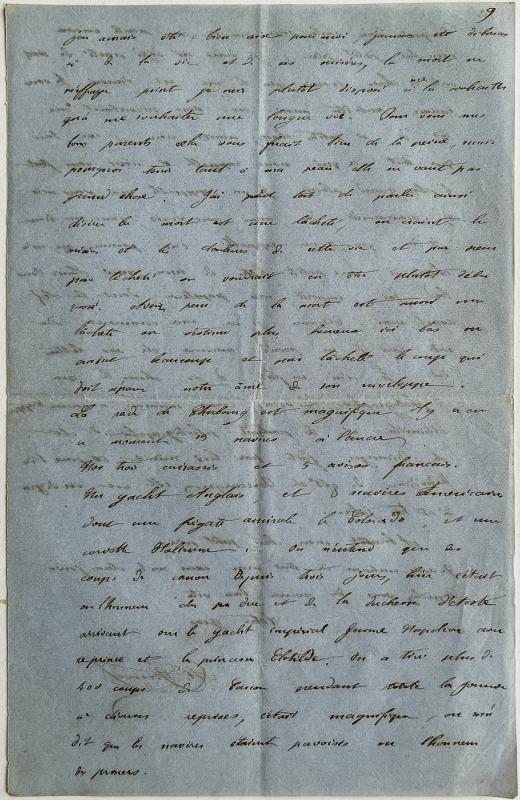 9
j'en aurais été bien aise pour moi jamais été
à de la vie et de ses misères, la mort ne
m'effraye point je me plutôt disposé à la souhaiter
qu'à me souhaiter une longue vie. Pour vous mes
bons parents cela vous ferait bien de la peine, mais
pourquoi tenir tant à ma peau elle ne vaut pas
grand chose. J'ai peut tort de parler ainsi
désirer la mort est une lâcheté, on craint la
misère et les douleurs de cette vie et par
pure lâcheté on voudrait en être plutôt débar
rassé. Avoir peur de la mort est aussi une
lâcheté on s'estime plus heureux ici bas on
craint beaucoup et par lâcheté le coup qui
doit séparer notre âme de son enveloppe.
La rade de Cherbourg est magnifique il y a en
ce moment navires à l'ancre,
Nos cuirassés et 5 avisos français.
Un yacht Anglais, et 3 navires Américains
dont une frégate amirale le Colorado et une
corvette Italienne : On n'entend que des
coups de canon depuis trois jours, hier c'était
en l'honneur du duc et de la duchesse d'Aoste
arrivant sur le yacht impérial Jérome Napoléon avec
le prince et la princesse Clotilde. On a tiré plus de
400 coups de canon pendant toute la journée
à diverses reprises, c'était magnifique, on m'a
dit que les navires étaient pavoisés en l'honneur
des princes.